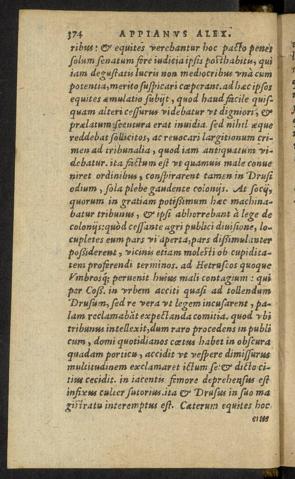 374 APPIANVS ALEX.
ribus: & equites verebantur hoc pacto penes
solum senatum fire iudicia ipsis posthabitu, qui
iam degustatu lucris non mediocribus vnà cum
potentia, merito suspicari cœperant. ad hæc ipsos
equites æmulatio subijt, quod haud facile quis-
quam alteri cessurus videbatur vt digniori, &
prælatum secutura erat inuidia. sed nihil æque
reddebat sollicitos, ac reuocari largitionum cri-
men ad tribunalia, quod iam antiquatum vi-
debatur. ita factum est vt quamuis male conue
niret ordinibus, conspirarent tamen in Drusi
odium, sola plebe gaudente colonijs. At socij,
quorum in gratiam potissimum hæc machina-
batur tribunus, & ipsi abhorrebant à lege de
colonijs: quòd cessante agri publici diuisione, lo-
cupletes eum pars vi aperta, pars dissimulanter
possiderent, vicinis etiam molesti ob cupidita-
tem proferendi terminos. ad Hetruscos quoque
Vmbrosq; peruenit huius mali contagium: qui
per Coss. in vrbem acciti quasi ad tollendum
Drusum, sed re vera vt legem incusarent, pa-
lam reclamabāt expectanda comitia. quod vbi
tribunus intellexit, dum raro procedens in publi
cum, domi quotidianos cœtus habet in obscura
quadam porticu, accidit vt vespere dimissurus
multitudinem exclamaret ictum se: & dicto ci-
tius cecidit. in iacentis fimore deprehensus est
infixus culter sutorius. ita & Drusus in suo ma
gistratu interemptus est. Cæterum equites hoc
eius